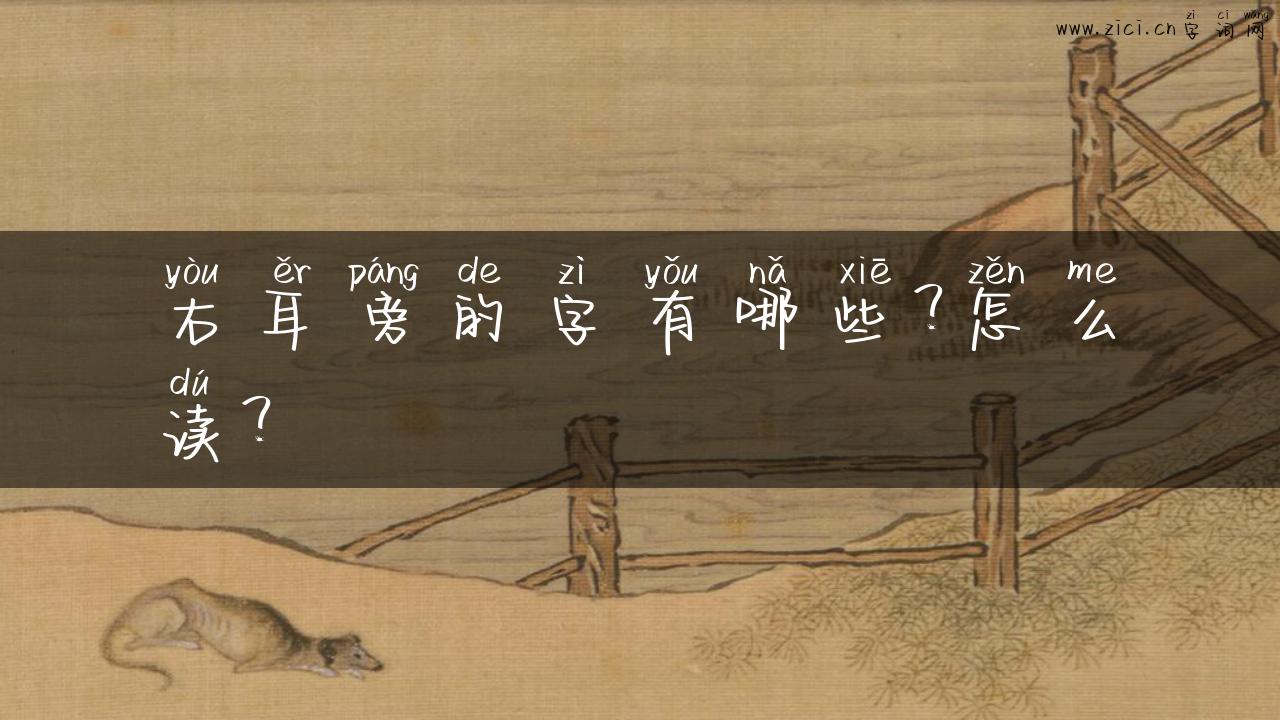 zì cí wǎng
www.zici.cn 字词网
yòu ěr páng de zì yǒu nǎ xiē zěn me
右耳旁的字有哪些？怎么
dú
读？